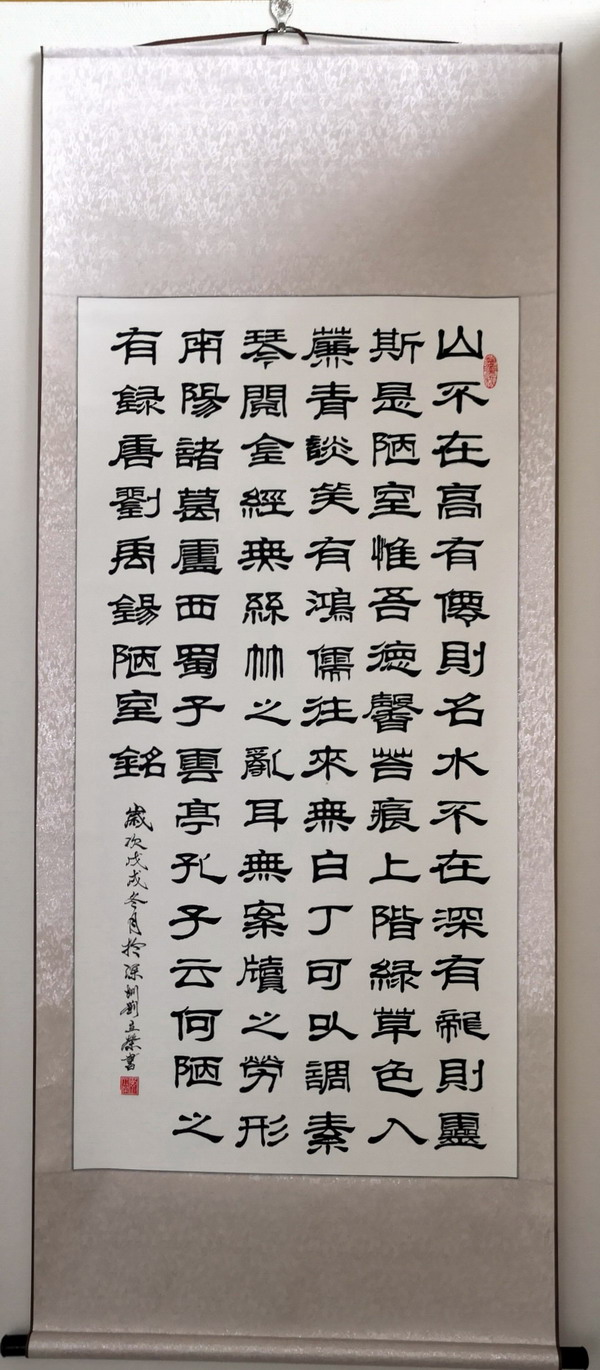 山不在高有僊則名水不在深有龍則靈
斯是陋室惟吾德馨苔痕上階綠草色入
簾青談笑有鴻儒往來無白丁可以調素
琴閱金經無絲竹之亂耳無案牘之勞形
南陽諸葛廬西蜀子雲亭孔子云何陋之
有録唐劉禹錫陋室銘
歲次戊戌冬月於深圳劉立榮書